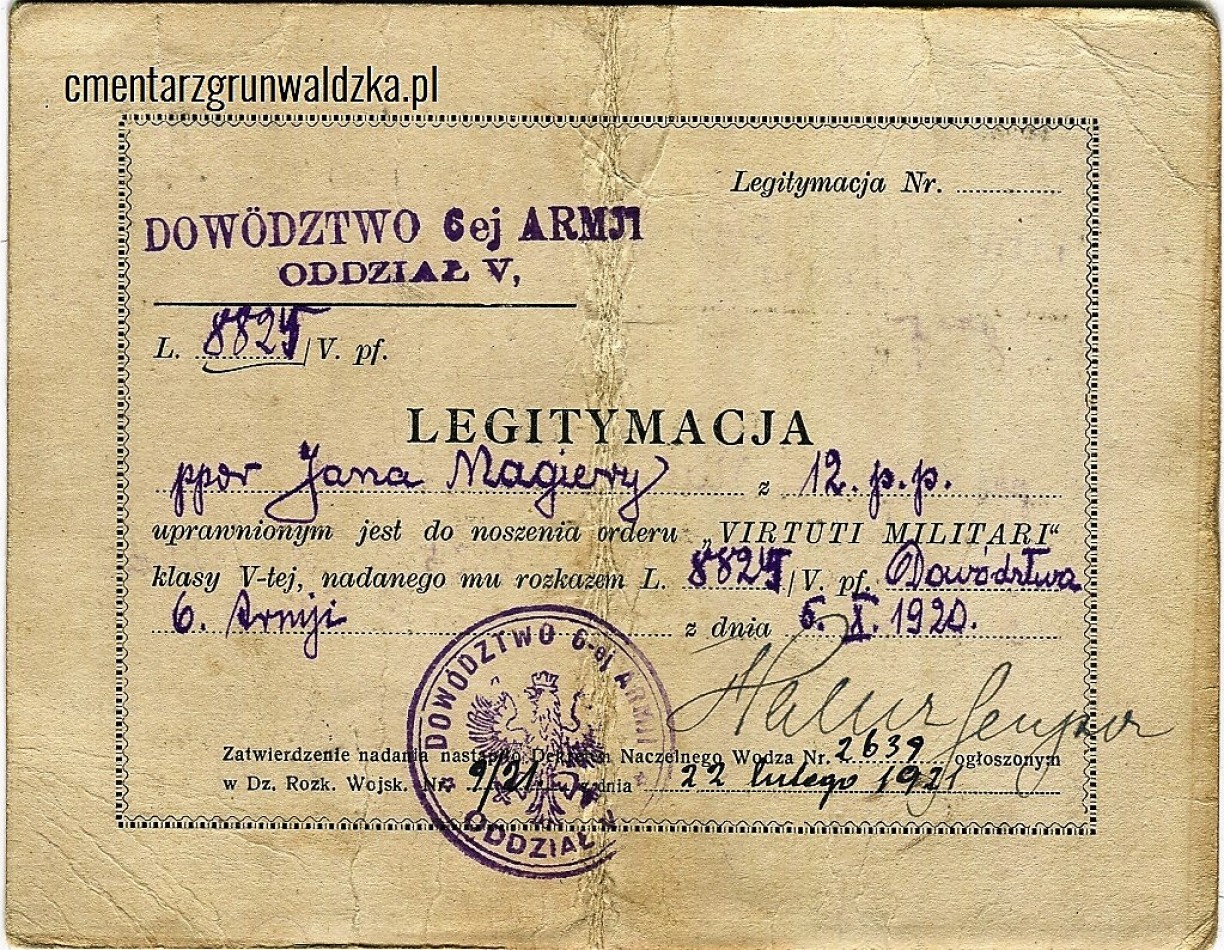 cmentarzgrunwaldzka.pl
Legitymacja Nr. ..............
DOWÓDZTWO 6ej ARMJI
ODDZIAŁ V,
L. 8825/V. pf.
LEGITYMACJA
ppor Jana Magiery z 12. p.p.
uprawnionym jest do noszenia orderu „VIRTUTI MILITARI“
klasy V-tej, nadanego mu rozkazem L. 8825/V. pf. Dowództwa
6. Armji z dnia 5. X. 1920.
DOWÓDZTWO 6-ej ARMII
ODDZIAŁ V
Zatwierdzenie nadania nastąpiło Dekretem Naczelnego Wodza Nr. 2639 ogłoszonym
w Dz. Rozk. Wojsk. Nr. 9/21 z dnia 22 lutego 1921